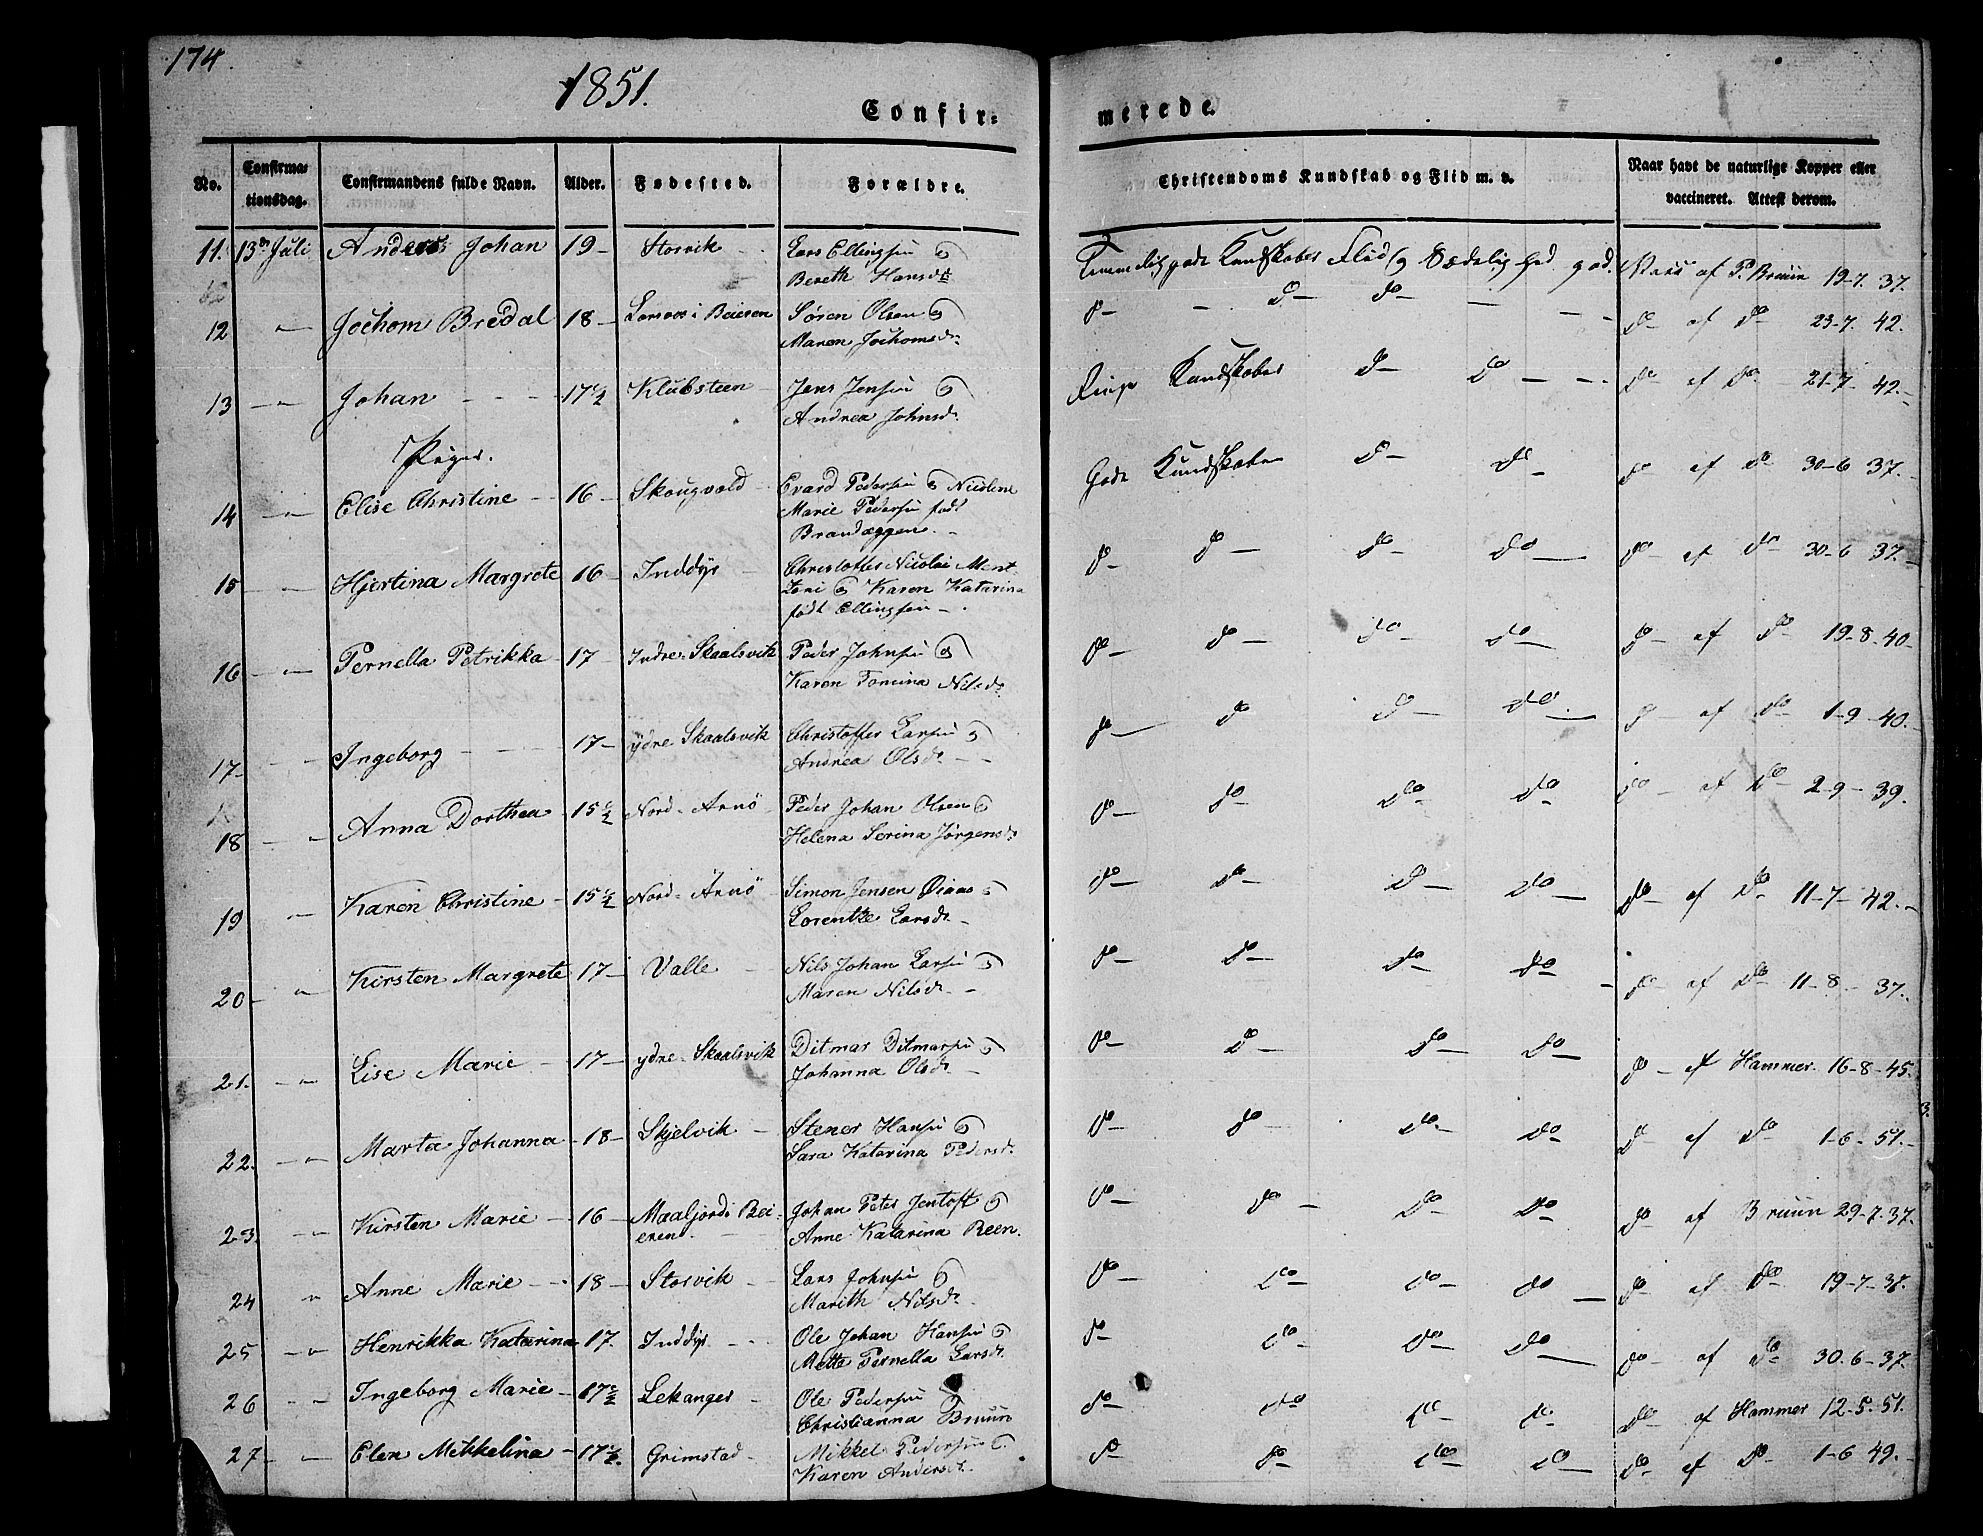 174.
1851.
Confir-
merede.
No.
Confirma-
tionsdag.
Confirmandens fulde Navn.
Alder.
Fødested.
Forældre.
Christendoms Kundskab og Flid m. v.
Naar havt de naturlige Kopper eller
vaccineret. Attest derom.
11. 13de Juli Anders Johan 19 - Storvik - Lars Ellingsen og
Bereth Hansd:
Temmelig gode Kundskaber Flid og Sædelighed god. Vacc af P. Bruun 19-7. 37.
12 — " — Jochom Bredal 18 - i Beieren Søren Olsen og
Maren Jochomsd:
do — — do — do — do — af do 23-7. 42.
13 — " — Johan - - - 17½ Klubsteen - Jens Jensen og
Andrea Johnsd:
Ringe Kundskaber do — do — — do af do 21-7- 42.-
Piger.
14 — " — Elise Christine - 16 - Skougvold - Evard Pedersen og Nicoline
Marie Pedersen født
Brandæggen. -
Gode Kundskaber do — do — do — af do 30-6 37.-
15 — " — Hjertina Margrete 16 - Inddyr - Christoffer Nicolai Ment-
zoni og Karen Katarina
født Ellingsen - .
do — do — do — do — do — af do 30-6 37.-
16 — " — Pernella Petrikka - 17 - Indre-Skaalsvik Peder Johnsen og
Karen Tomina Nilsd:
do — do — do — do — do — af do 19-8-40-
17 - - " - Ingeborg - - - 17 - ydre Skaalsvik Christoffer Larsen og
Andrea Olsd: - -
do — do do — do. — do — af do 1-9-40.-
18 — " Anna Dorthea - 15½ Nord-Arnö - Peder Johan Olsen og
Helena Serina Jørgensd:
do — do — do — do — do — af do 2-9-39.
19 " Karen Christine - 15½ Nord-Arnö - Simon Jensen og
Lorentze Larsd: -
do — do — do — do — do — af do 11-7-42.-
20 - " Kirsten Margrete 17 - Valle - Nils Johan Larsen og
Maren Nilsd: - -
do — do — do — do — do — af do 11-8-37.
21. - " - Lise Marie - 17 - ydre-Skaalsvik Ditmar Ditmarsen og
Johanna Olsd: -
do — do — do — do — do — af Hammer. 16-8-45.
22. — " Marta Johanna - 18 - Skjelvik - Stener Hansen og
Sara Katarina Pedersd:
do — do — do — do — do af do 1-6-51.-
23. - " - Kirsten Marie - 16 - Maaljord i Bei-
eren. - Johan Peter Jentoft og
Anne Katarina Reen.
do — do — do — do — do — af Bruun 29-7.37.
24 " Anne Marie - 18 - Storvik - Lars Johnsen og
Marith Nilsd:
do — do — do — do — do — af do 19-7-37.
25 - " - Henrikka Katarina 17. Inddyr - Ole Johan Hansen og
Mette Pernella Larsd:
do — do — do — do — do — af do 30.6-37.
26 - " - Ingeborg Marie - 17½ Lekanger - Ole Pedersen og
Christianna Bruun
do — do do — do — do — af Hammer 12-5.51.
27 - " - Elen Mikkelina - 17½. Grimstad - Mikkel Pedersen og
Karen Andersd: -
do — do — do — do — do — af do 1-6 49.-